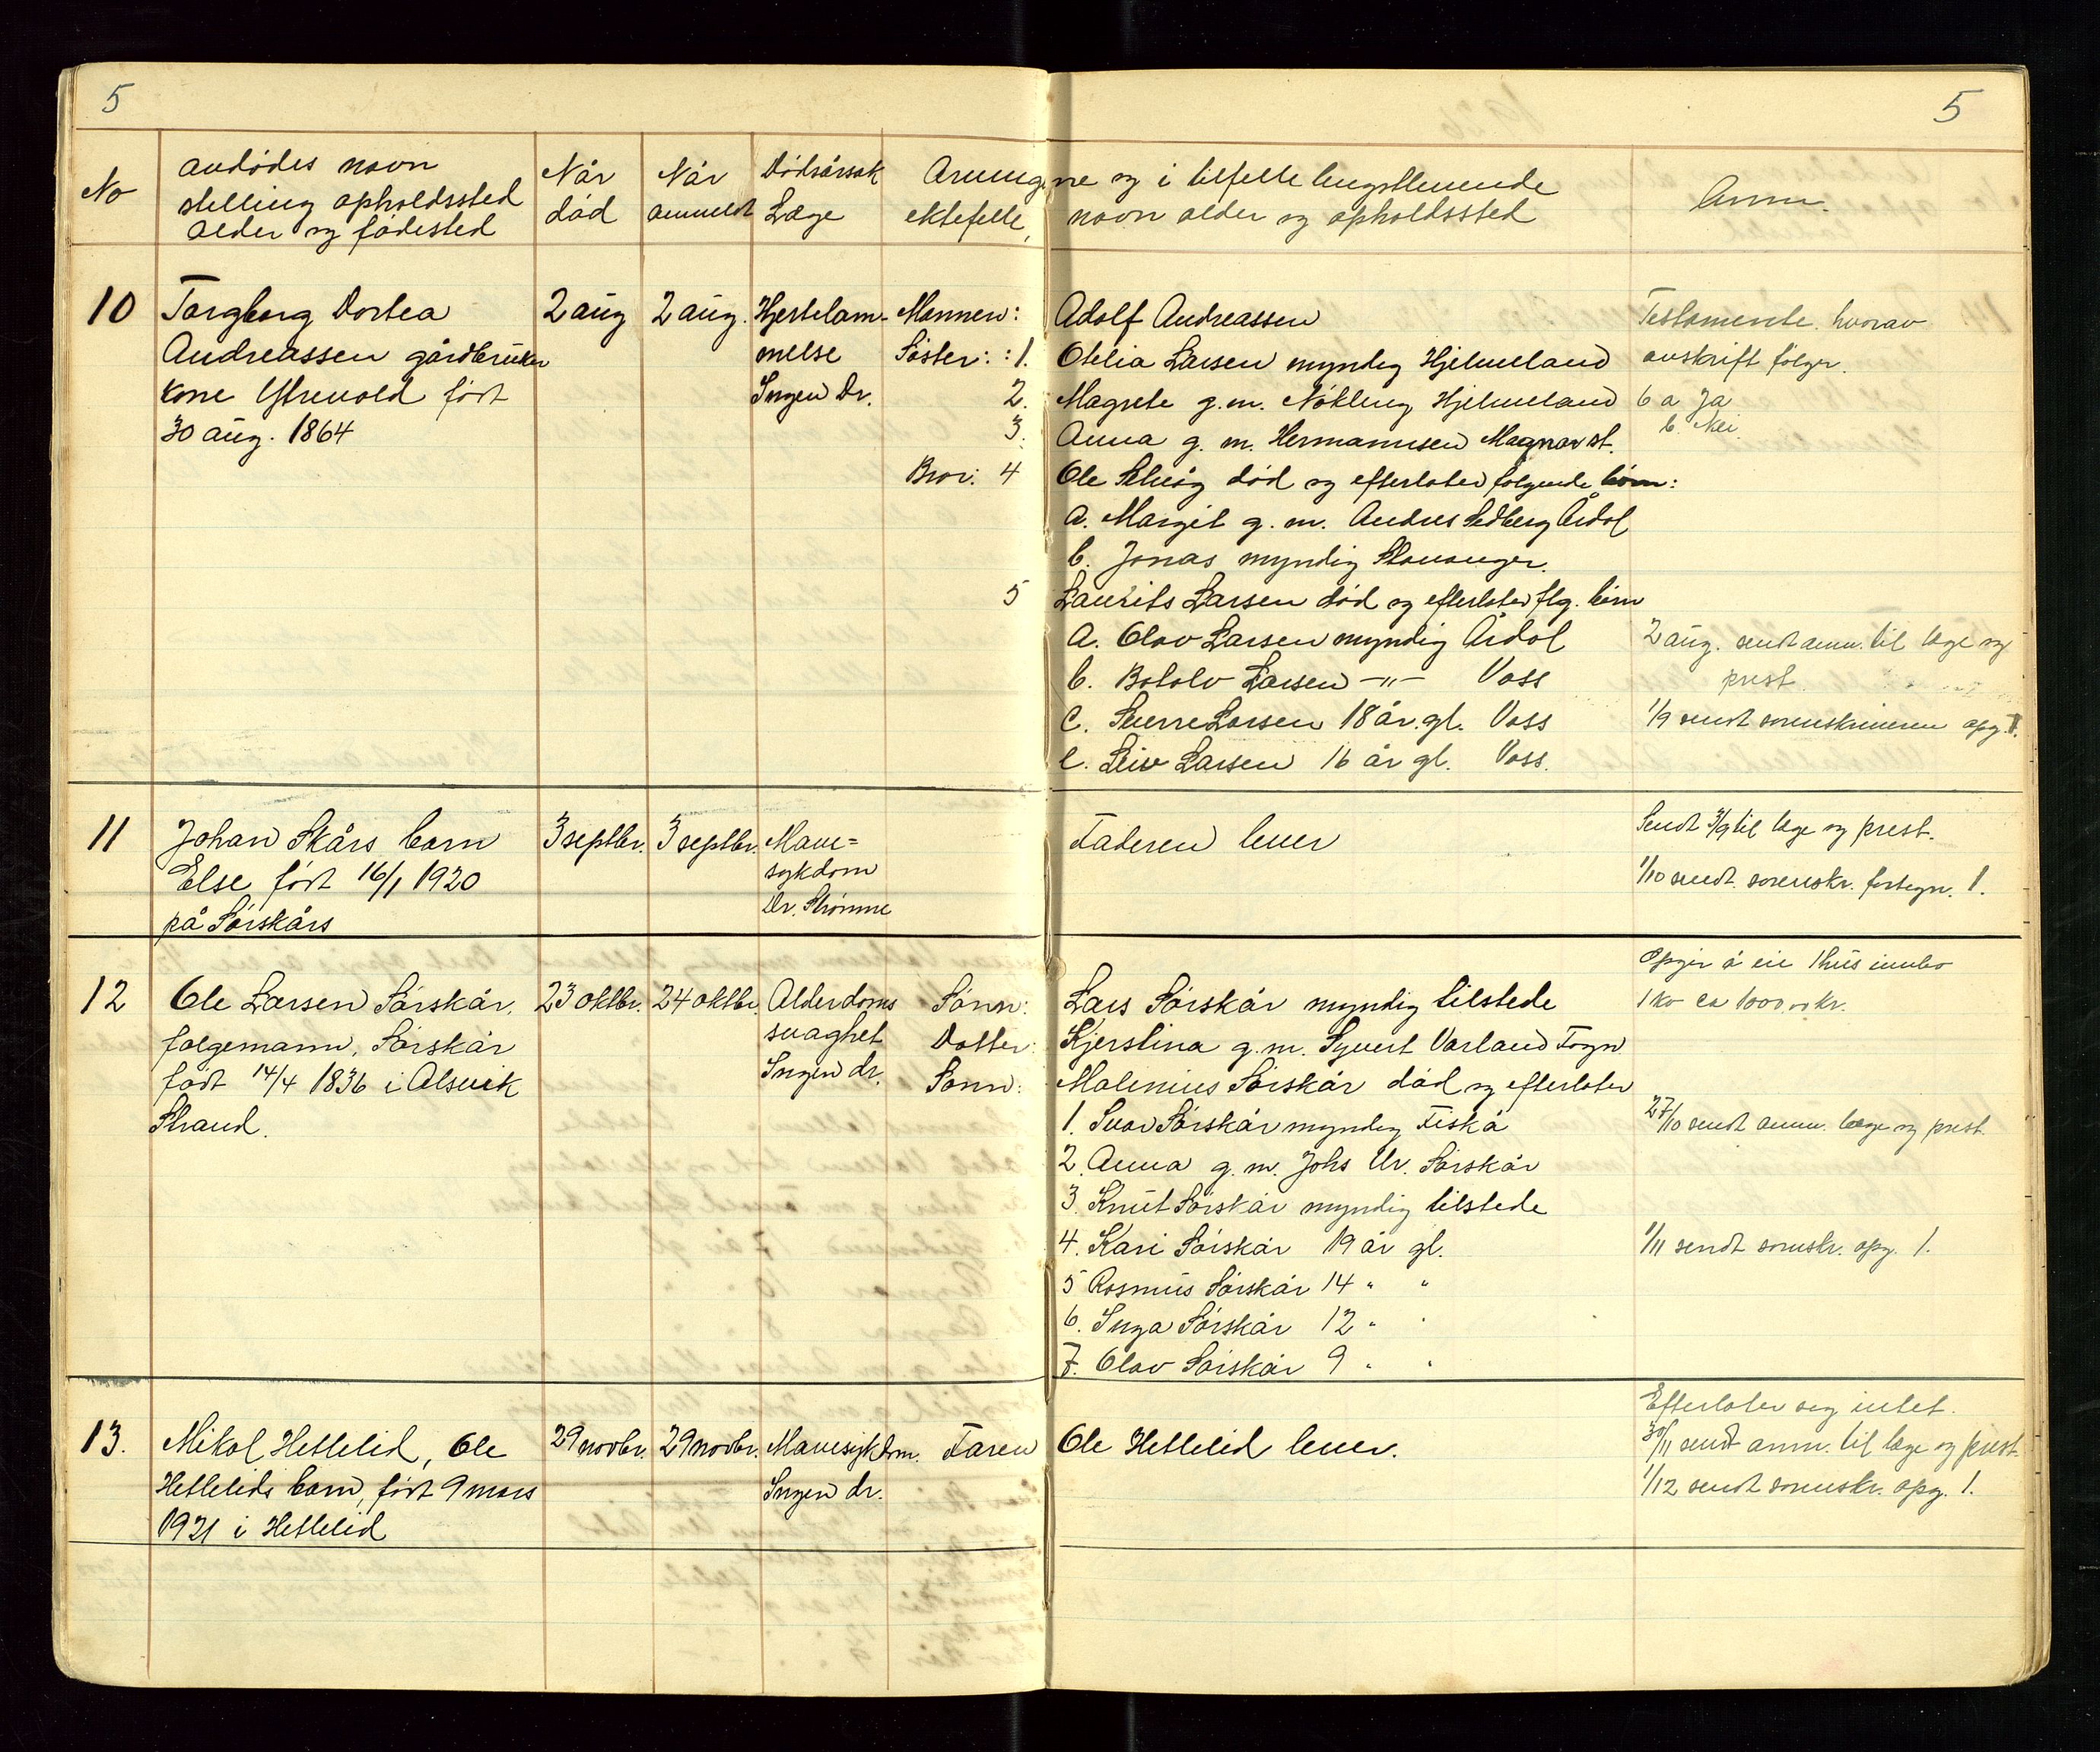 5
5
No
avdødes navn
stelling opholdssted
alder og fødested
Når
død
Når
anmeldt
Dødsårsak
Læge
Arvingene og i tilfelle lengstlevende
ektefelle, navn alder og opholdssted
Anm.
10
Torgborg Dortea
Andreassen gårdbruker
kone Ytrevold født
30 aug. 1864
2 aug
2 aug.
Hjertelam-
melse
Ingen Dr.
Mannen: Adolf Andreassen
Søster: :1. Otelia Larsen myndig Hjelmeland
2. Magrete g.m. Nökling Hjelmeland
3. Anna g. m. Hermannsen Magnavst.
Bror: 4 Ole död og efterlater følgende børn:
a. Margit g. m. Andres Årdal
b. Jonas myndig Stavanger.
5 Laurits Larsen død og efterlater flg. børn
a. Olav Larsen myndig Årdal
b. Botolv Larsen -"- Voss
c. Sverre Larsen 18 år. gl. Voss
e. Leiv Larsen 16 år gl. Voss.
Testamente. hvorav
avskrift følger.
6 a Ja
b. Nei
2 aug. sendt anm. til læge og
prest
1/9 sendt sorenskriveren opg. 1.
11
Johan Skårs barn
Else, født 16/1 1920
på Sørskårs
3 septbr.
3 septbr.
Mave=
sykdom
Dr. Strømme
Faderen lever
Sendt 3/9 til læge og prest.
1/10 sendt. sorenskr. fortegn. 1.
12
Ole Larsen Sørskår,
folgemann, Sørskår
født 14/4 1836 i Alsvik
Strand.
23 oktbr.
24 oktbr.
Alderdoms
svaghet
Ingen dr.
Sønn: Lars Sørskår myndig tilstede
Datter: Kjerstina g.m. Syvert Varland Fogn
Sønn: Malenius Sørskår død og efterlater
1. Ivar Sørskår myndig Fiskå
2. Anna g. m. Johs Ur. Sørskår
3. Knut Sørskår myndig tilstede
4. Kari Sørskår 19 år gl.
5 Rasmus Sørskår 14 " "
6. Inga Sørskår 12 " "
7. Olav Sørskår 9 " "
Opgir å eie 1 hus innbo
1 ko ca 1000,00 kr.
27/10 sendt anm. læge og prest.
1/11 sendt sornskr. opg. 1.
13.
Mikal Hetlelid, Ole
Hetlelids barn, født 9 mars
1921 i Hetlelid
29 novbr.
29 novbr.
Mavesykdom.
Ingen dr.
Faren Ole Hetlelid lever.
Efterlater seg intet.
30/11 sendt anm. til læge og prest.
1/12 sendt sorenskr. opg. 1.